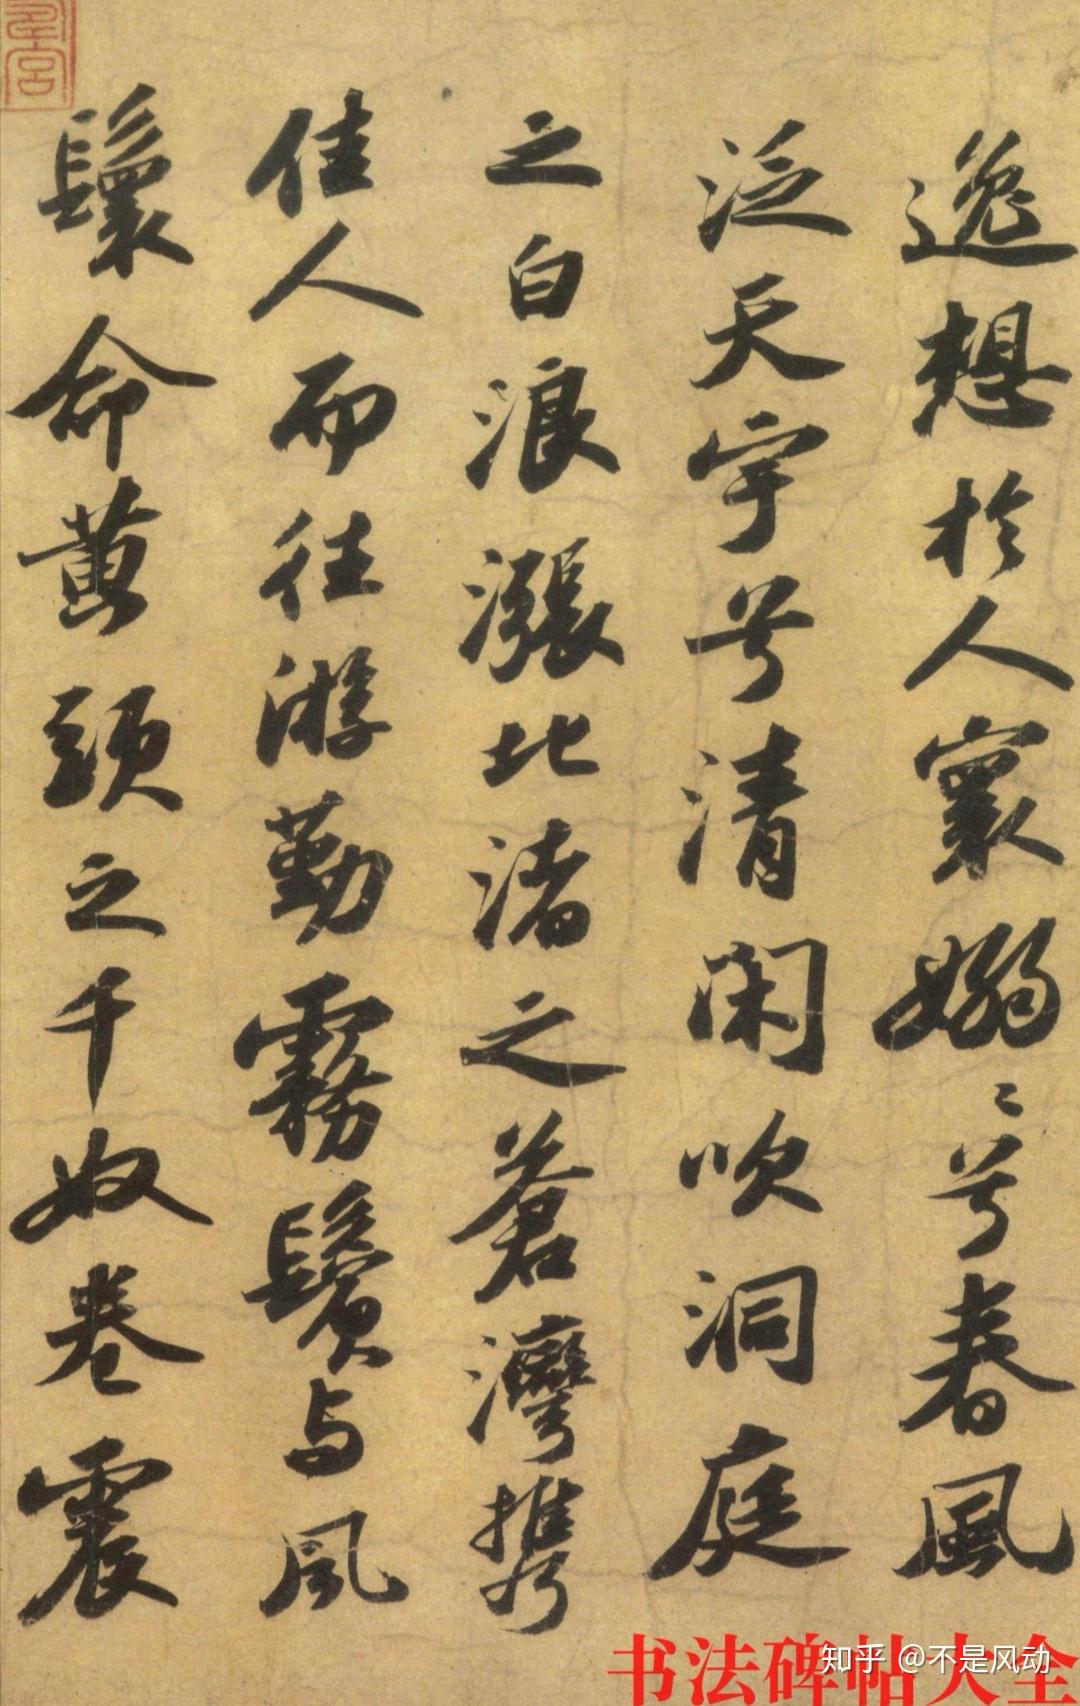 逸想於人寰嫋〻兮春風
泛天宇兮清閑吹洞庭
之白浪漲北渚之蒼灣攜
佳人而往游勤霧鬢与風
鬟命黃頭之千奴卷震
书法碑帖大全
知乎 @不是风动